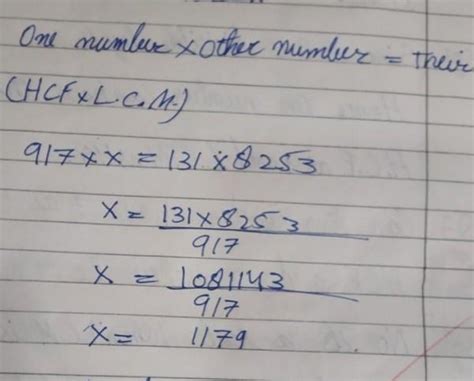 One number × Other number = Their
(HCF × L.C.M.)
917 × x = 131 × 8253
x = 131 × 8253
917
x = 1081143
917
x = 1179